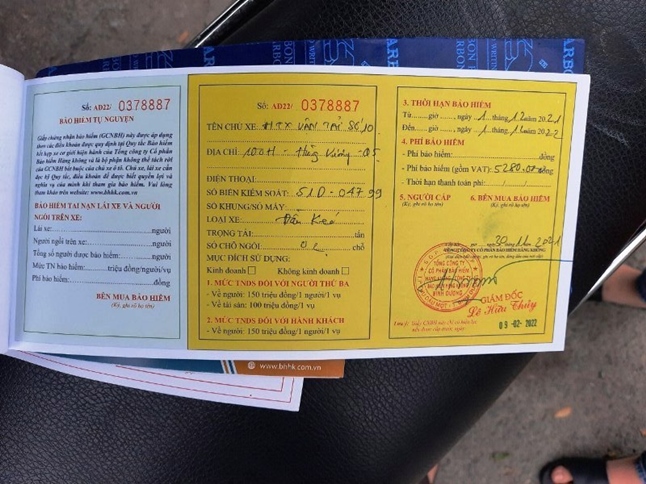 Số: AD22/ 0378887
BẢO HIỂM TỰ NGUYỆN
Giấy chứng nhận bảo hiểm (GCNBH) này được áp dụng
theo các điều khoản được quy định tại Quy tắc Bảo hiểm
kết hợp xe cơ giới hiện hành của Tổng công ty Cổ phần
Bảo hiểm Hàng không và là bộ phận không thể tách rời
của GCNBH bắt buộc của chủ xe ô tô. Chủ xe, lái xe cần
đọc kỹ Quy tắc, điều khoản để được biết quyền lợi và
nghĩa vụ của mình khi tham gia bảo hiểm. Vui lòng
tham khảo trên website: www.bhhk.com.vn
BẢO HIỂM TAI NẠN LÁI XE VÀ NGƯỜI
NGỒI TRÊN XE:
Lái xe: người
Người ngồi trên xe: người
Tổng số người được bảo hiểm: người
Mức TN bảo hiểm: triệu đồng/người/vụ
Phí bảo hiểm: đồng
BÊN MUA BẢO HIỂM
(Ký, ghi rõ họ tên)
Số: AD22/ 0378887
TÊN CHỦ XE: HTX VẬN TẢI SỐ 10
ĐỊA CHỈ: 100H - Hùng Vương - Q5
ĐIỆN THOẠI:
SỐ BIỂN KIỂM SOÁT: 51D-047 99
SỐ KHUNG/SỐ MÁY:
LOẠI XE: Đầu Kéo
TRỌNG TẢI: tấn
SỐ CHỖ NGỒI: 02 chỗ
MỤC ĐÍCH SỬ DỤNG:
Kinh doanh Không kinh doanh
1. MỨC TNDS ĐỐI VỚI NGƯỜI THỨ BA
- Về người: 150 triệu đồng/1 người/1 vụ
- Về tài sản: 100 triệu đồng/1 vụ
2. MỨC TNDS ĐỐI VỚI HÀNH KHÁCH
- Về người: 150 triệu đồng/1 người/1 vụ
3. THỜI HẠN BẢO HIỂM
Từ giờ , ngày 1 tháng 12 năm 2021
Đến giờ , ngày 1 tháng 12 năm 2022
4. PHÍ BẢO HIỂM
- Phí bảo hiểm: đồng
- Phí bảo hiểm (gồm VAT): đồng
- Thời hạn thanh toán phí:
5. NGƯỜI CẤP 6. BÊN MUA BẢO HIỂM
(Ký, ghi rõ họ tên) (Ký, ghi rõ họ tên)
ngày 30/11/2021
TỔNG CÔNG TY
CỔ PHẦN BẢO HIỂM
HÀNG KHÔNG
BÌNH DƯƠNG
GIÁM ĐỐC
Lê Hữu Thủy
09-02-2022
www.bhhk.com.vn